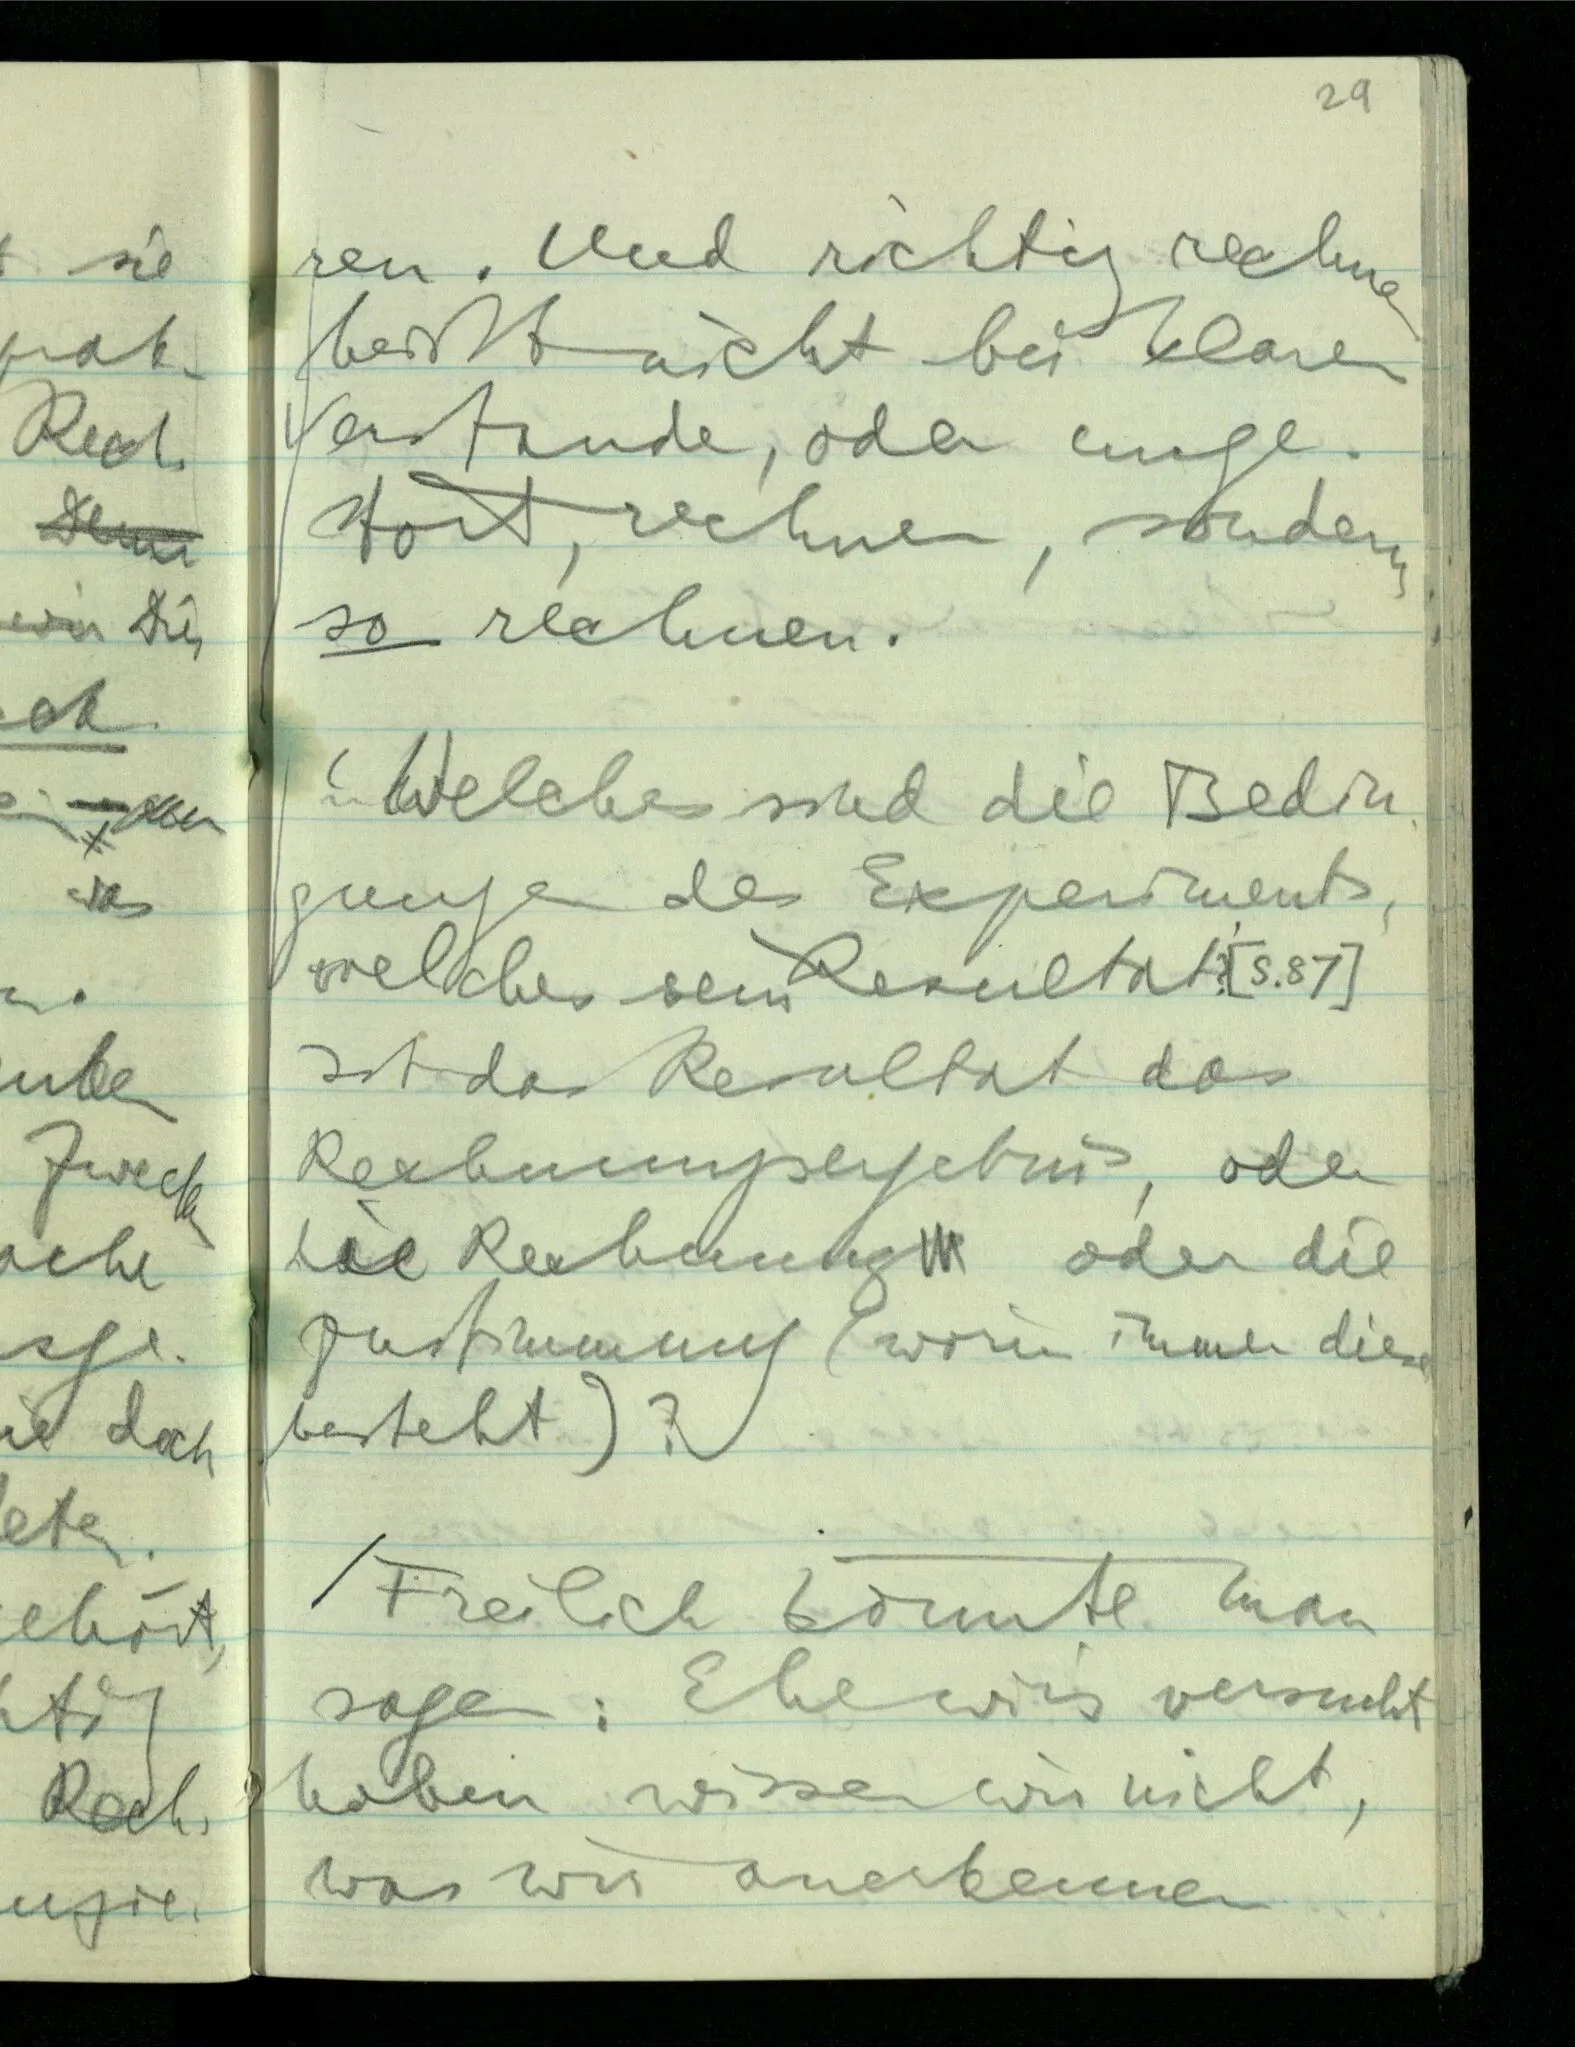 29
t sie
prak-
Rech-
Denn
wir Die
ein
was
Zweck
ache
sge-
ie doch
leten.
gehört,
htig
Rech-
ren. Und richtig rechnen
heißt nicht bei klarem
Verstande, oder unge-
stört, rechnen, sondern
so rechnen.
Welches sind die Bedin-
gungen des Experiments,
welches sein Resultat? [S.87]
Ist das Resultat das
Rechnungsergebnis, oder
die Rechnung oder die
Zustimmung (worin immer diese
besteht)?
/ Freilich könnte man
sagen: Ehe wir's versucht
haben wissen wir nicht,
was wir anerkennen